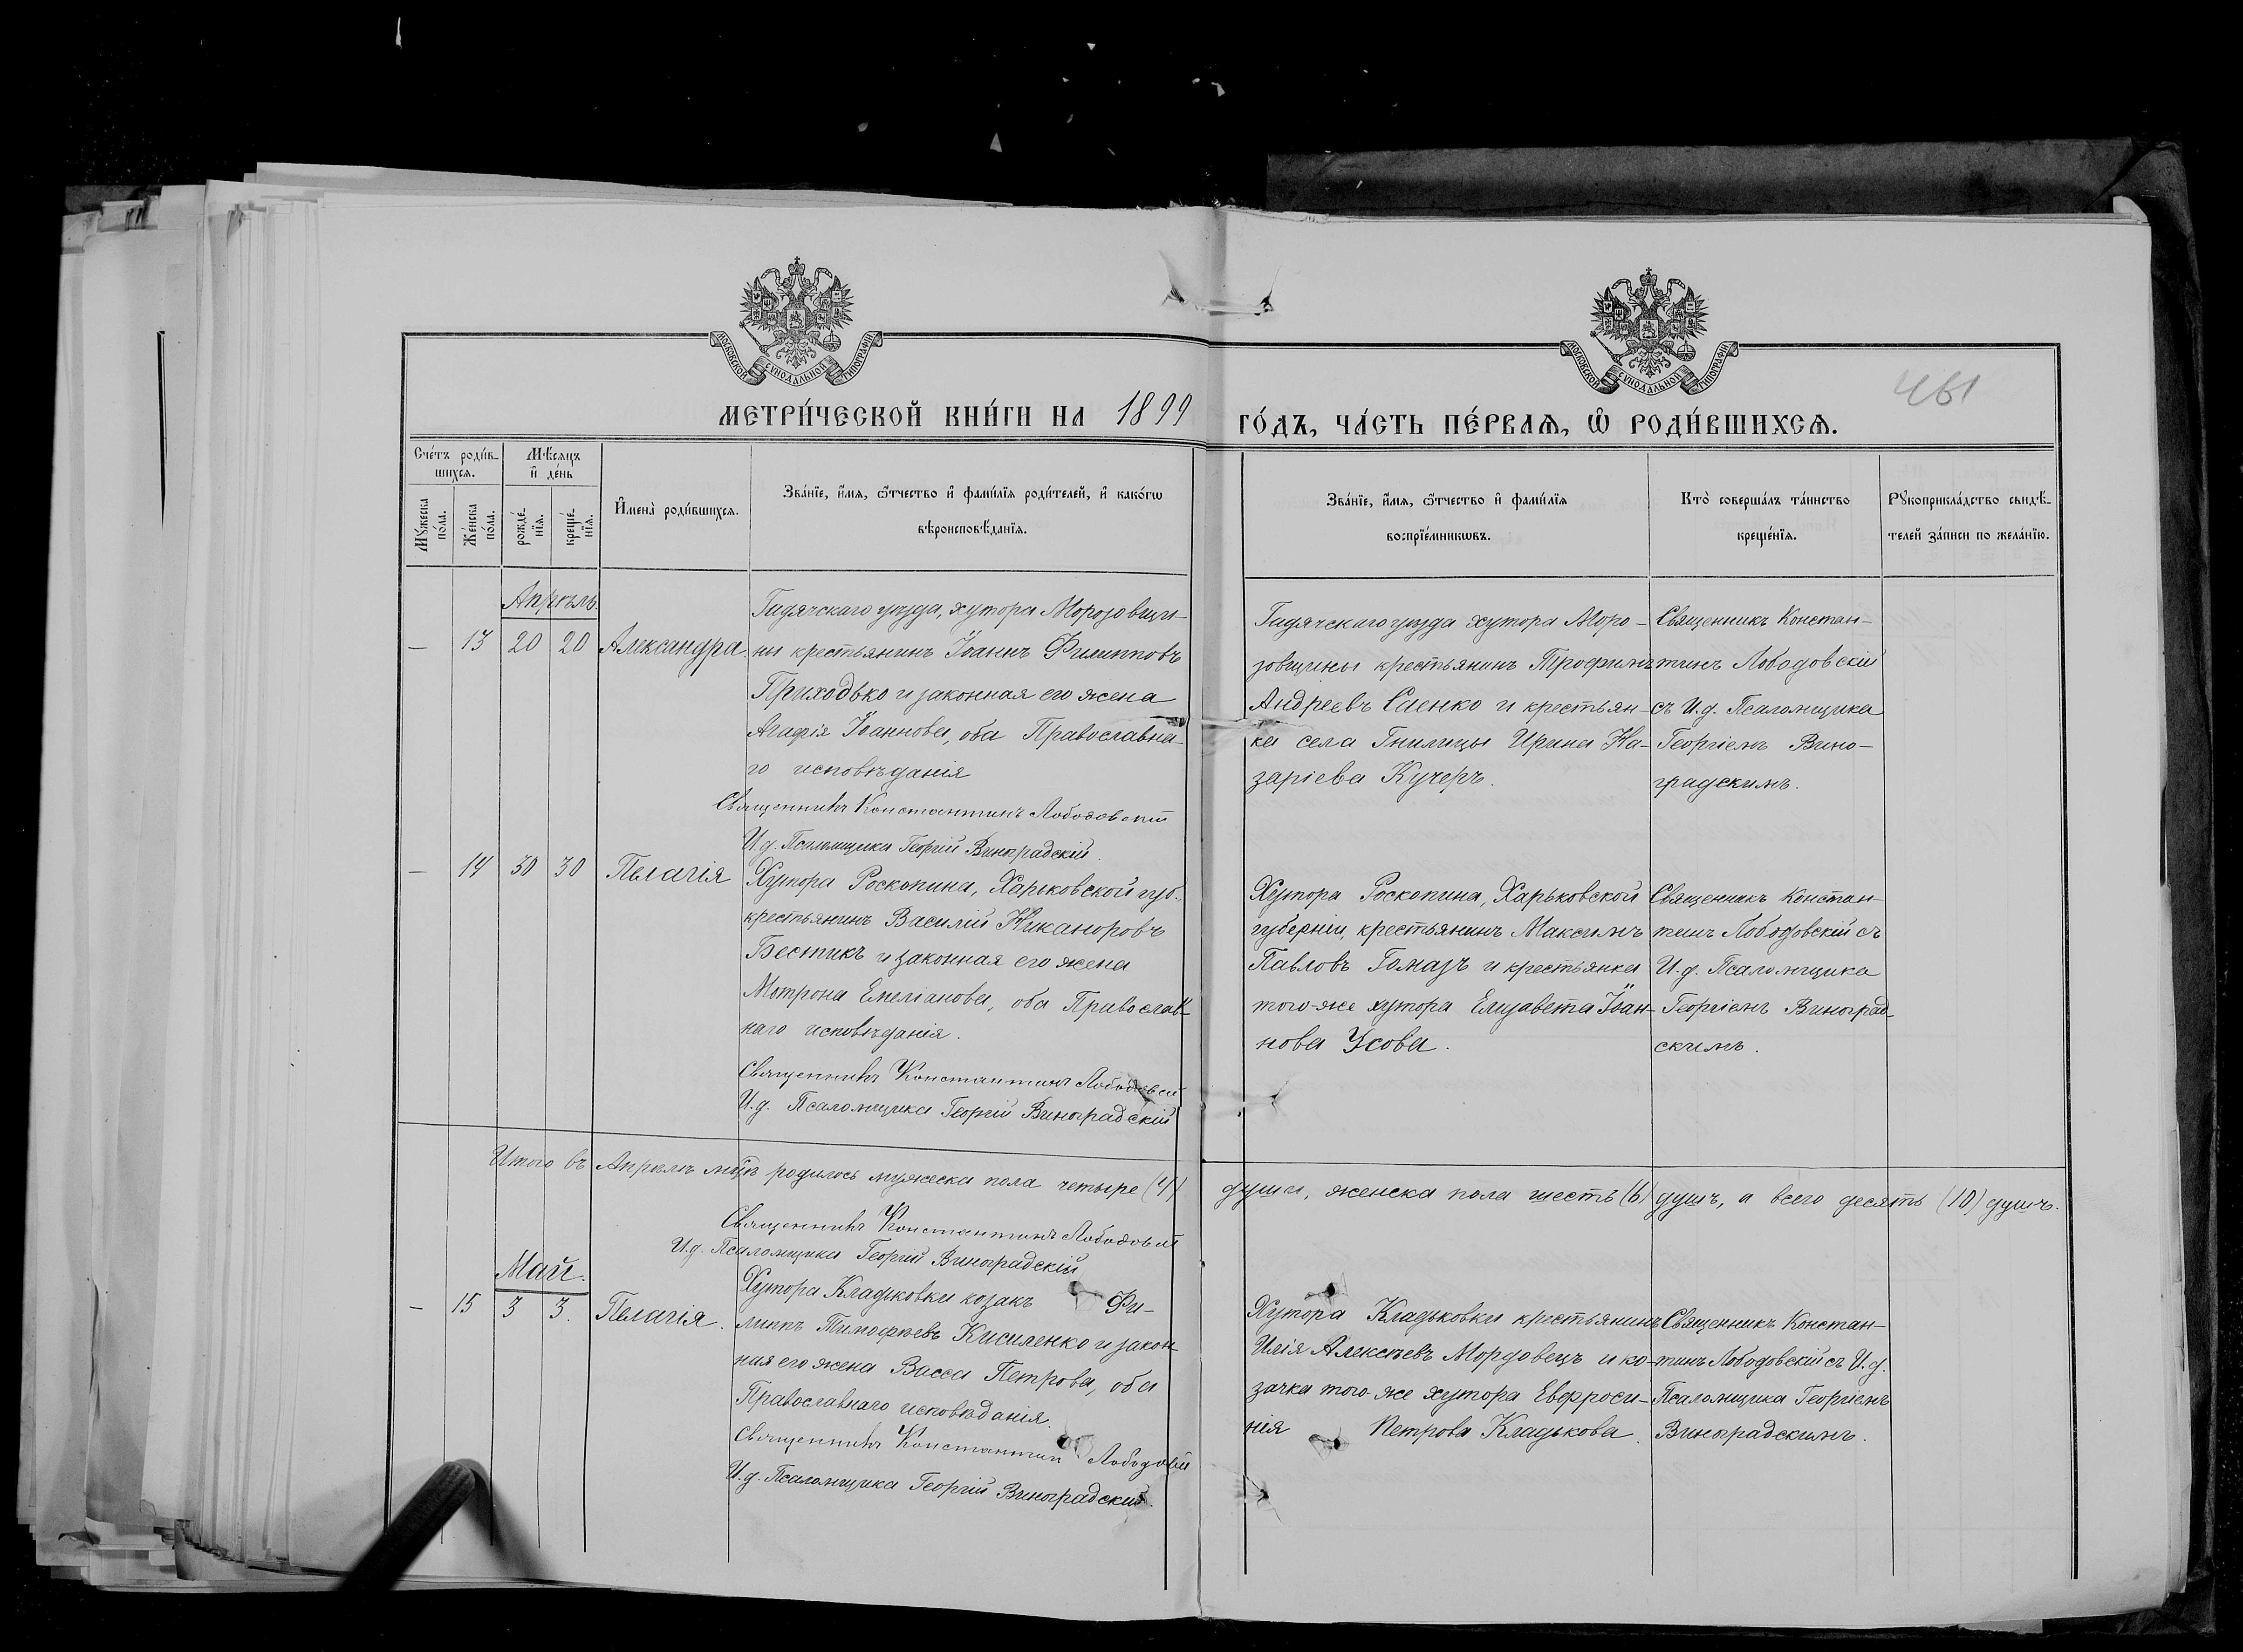 МОСКОВСКОЙ СѴНОДАЛЬНОЙ ТИПОГРАФІИ
МОСКОВСКОЙ СѴНОДАЛЬНОЙ ТИПОГРАФІИ
461
МЕТРИ́ЧЕСКОЙ КНИ́ГИ НА 1899 ГО́ДЪ, ЧА́СТЬ ПЕ́РВАѦ, Ѽ РОДИ́ВШИХСѦ.
Сче́тъ роди́в-
шихсѧ.
Мꙋжеска по́ла.
Же́нска по́ла.
Мѣ́сѧцъ
и҆ де́нь
рожде́-
нїѧ.
креще́-
нїѧ.
И҆мена̀ роди́вшихсѧ.
Зва́нїе, и҆́мѧ, ѻ҆́тчество и҆ фами́лїѧ роди́телей, и҆ како́гѡ
вѣроисповѣ́данїѧ.
Зва́нїе, и҆́мѧ, ѻ҆́тчество и҆ фами́лїѧ
воспрїе́мникѡвъ.
Кто̀ соверша́лъ та́инство
креще́нїѧ.
Рꙋкоприкла́дство свидѣ́-
телей за́писи по жела́нїю.
Апрѣль.
— 13 20 20 Александра.
Гадячскаго уѣзда, хутора Морозовщи-
ны крестьянинъ Іоаннъ Филипповъ
Приходько и законная его жена
Агафія Іоаннова, оба Православна-
го исповѣданія
Священникъ Константинъ Лободовскій
И.д. Псаломщика Георгій Виноградскій.
Гадячскаго уѣзда хутора Моро-
зовщины крестьянинъ Трофимъ
Андреевъ Саенко и крестьян-
ка села Гнилицы Ирина На-
заріева Кучеръ.
Священникъ Констан-
тинъ Лободовскій
съ И.д. Псаломщика
Георгіемъ Вино-
градскимъ.
— 14 30 30 Пелагія
Хутора Роскопина, Харьковской губ.,
крестьянинъ Василій Никаноровъ
Бестикъ и законная его жена
Мотрона Емеліанова, оба Православ-
наго исповѣданія.
Священникъ Константинъ Лободовскій
И.д. Псаломщика Георгій Виноградскій
Хутора Роскопина, Харьковской
губерніи, крестьянинъ Максимъ
Павловъ Гомазъ и крестьянка
того-же хутора Елизавета Іоан-
нова Усова.
Священникъ Констан-
тинъ Лободовскій съ
И.д. Псаломщика
Георгіемъ Виноград-
скимъ.
Итого въ Апрѣлѣ мцѣ родилось мужеска пола четыре (4) души, женска пола шесть (6) душъ, а всего десять (10) душъ.
Священникъ Константинъ Лободовскій
И.д. Псаломщика Георгій Виноградскій
Май.
— 15 3 3. Пелагія.
Хутора Кладьковки козакъ Фи-
липпъ Тимофѣевъ Кисиленко и закон-
ная его жена Васса Петрова, оба
Православнаго исповѣданія.
Священникъ Константинъ Лободовскій
И.д. Псаломщика Георгій Виноградскій.
Хутора Кладьковки крестьянинъ
Илія Алексѣевъ Мордовецъ и ко-
зачка того же хутора Евфроси-
нія Петрова Кладькова.
Священникъ Констан-
тинъ Лободовскій съ И.д.
Псаломщика Георгіемъ
Виноградскимъ.